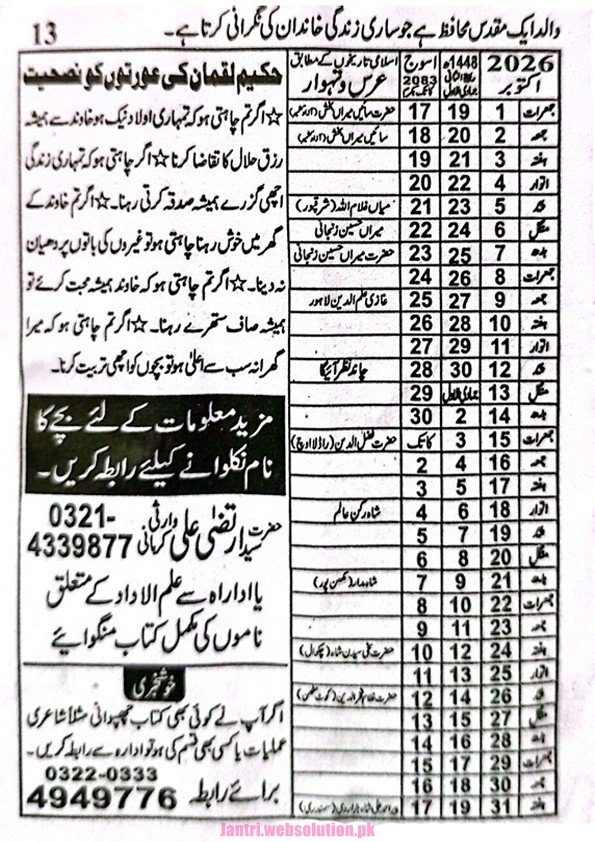 والد ایک مقدس محافظ ہے جو ساری زندگی خاندان کی نگرانی کرتا ہے۔
13
حکیم لقمان کی عورتوں کو نصیحت
☆ اگر تم چاہتی ہو کہ تمہاری اولاد نیک ہو خاوند سے ہمیشہ
رزق حلال کا تقاضا کرنا ☆ اگر چاہتی ہو کہ تمہاری زندگی
اچھی گزرے ہمیشہ صدقہ کرتی رہنا۔ ☆ اگر تم خاوند کے
گھر میں خوش رہنا چاہتی ہو تو غیروں کی باتوں پر دھیان
نہ دینا۔ ☆ اگر تم چاہتی ہو کہ خاوند ہمیشہ محبت کرے تو
ہمیشہ صاف ستھرے رہنا۔ ☆ اگر تم چاہتی ہو کہ میرا
گھرانہ سب سے اعلیٰ ہو تو بچوں کو اچھی تربیت کرنا۔
مزید معلومات کے لئے بچے کا
نام نکلوانے کیلئے رابطہ کریں۔
حضرت سید ارتضیٰ علی وارثی کرمانی
0321-
4339877
یا ادارہ سے علم الاعداد کے متعلق
ناموں کی مکمل کتاب منگوائیے
خوشخبری
اگر آپ نے کوئی بھی کتاب چھپوانی مثلاً شاعری
عملیات یا کسی بھی قسم کی ہو تو ادارہ سے رابطہ کریں۔
برائے رابطہ
0322-0333
4949776
2026 اکتوبر 1448ھ اسوج 2083 اسلامی تاریخوں کے مطابق عرس و تہوار
جمعرات 1 19 17
جمعہ 2 20 18
ہفتہ 3 21 19
اتوار 4 22 20
پیر 5 23 21 میاں غلام اللہ (شرقپور)
منگل 6 24 22 میراں حسین زنجانی
بدھ 7 25 23 حضرت میراں حسین زنجانی
جمعرات 8 26 24
جمعہ 9 27 25 غازی علم الدین لاہور
ہفتہ 10 28 26
اتوار 11 29 27
پیر 12 30 28 چاند نظر آئیگا
منگل 13 جمادی الاول 29
بدھ 14 2 30
جمعرات 15 3 کاتک
جمعہ 16 4 2
ہفتہ 17 5 3
اتوار 18 6 4 شاہ رکن عالم
پیر 19 7 5
منگل 20 8 6
بدھ 21 9 7
جمعرات 22 10 8
جمعہ 23 11 9
ہفتہ 24 12 10
اتوار 25 13 11
پیر 26 14 12
منگل 27 15 13
بدھ 28 16 14
جمعرات 29 17 15
جمعہ 30 18 16
ہفتہ 31 19 17
Jantri.websolution.pk